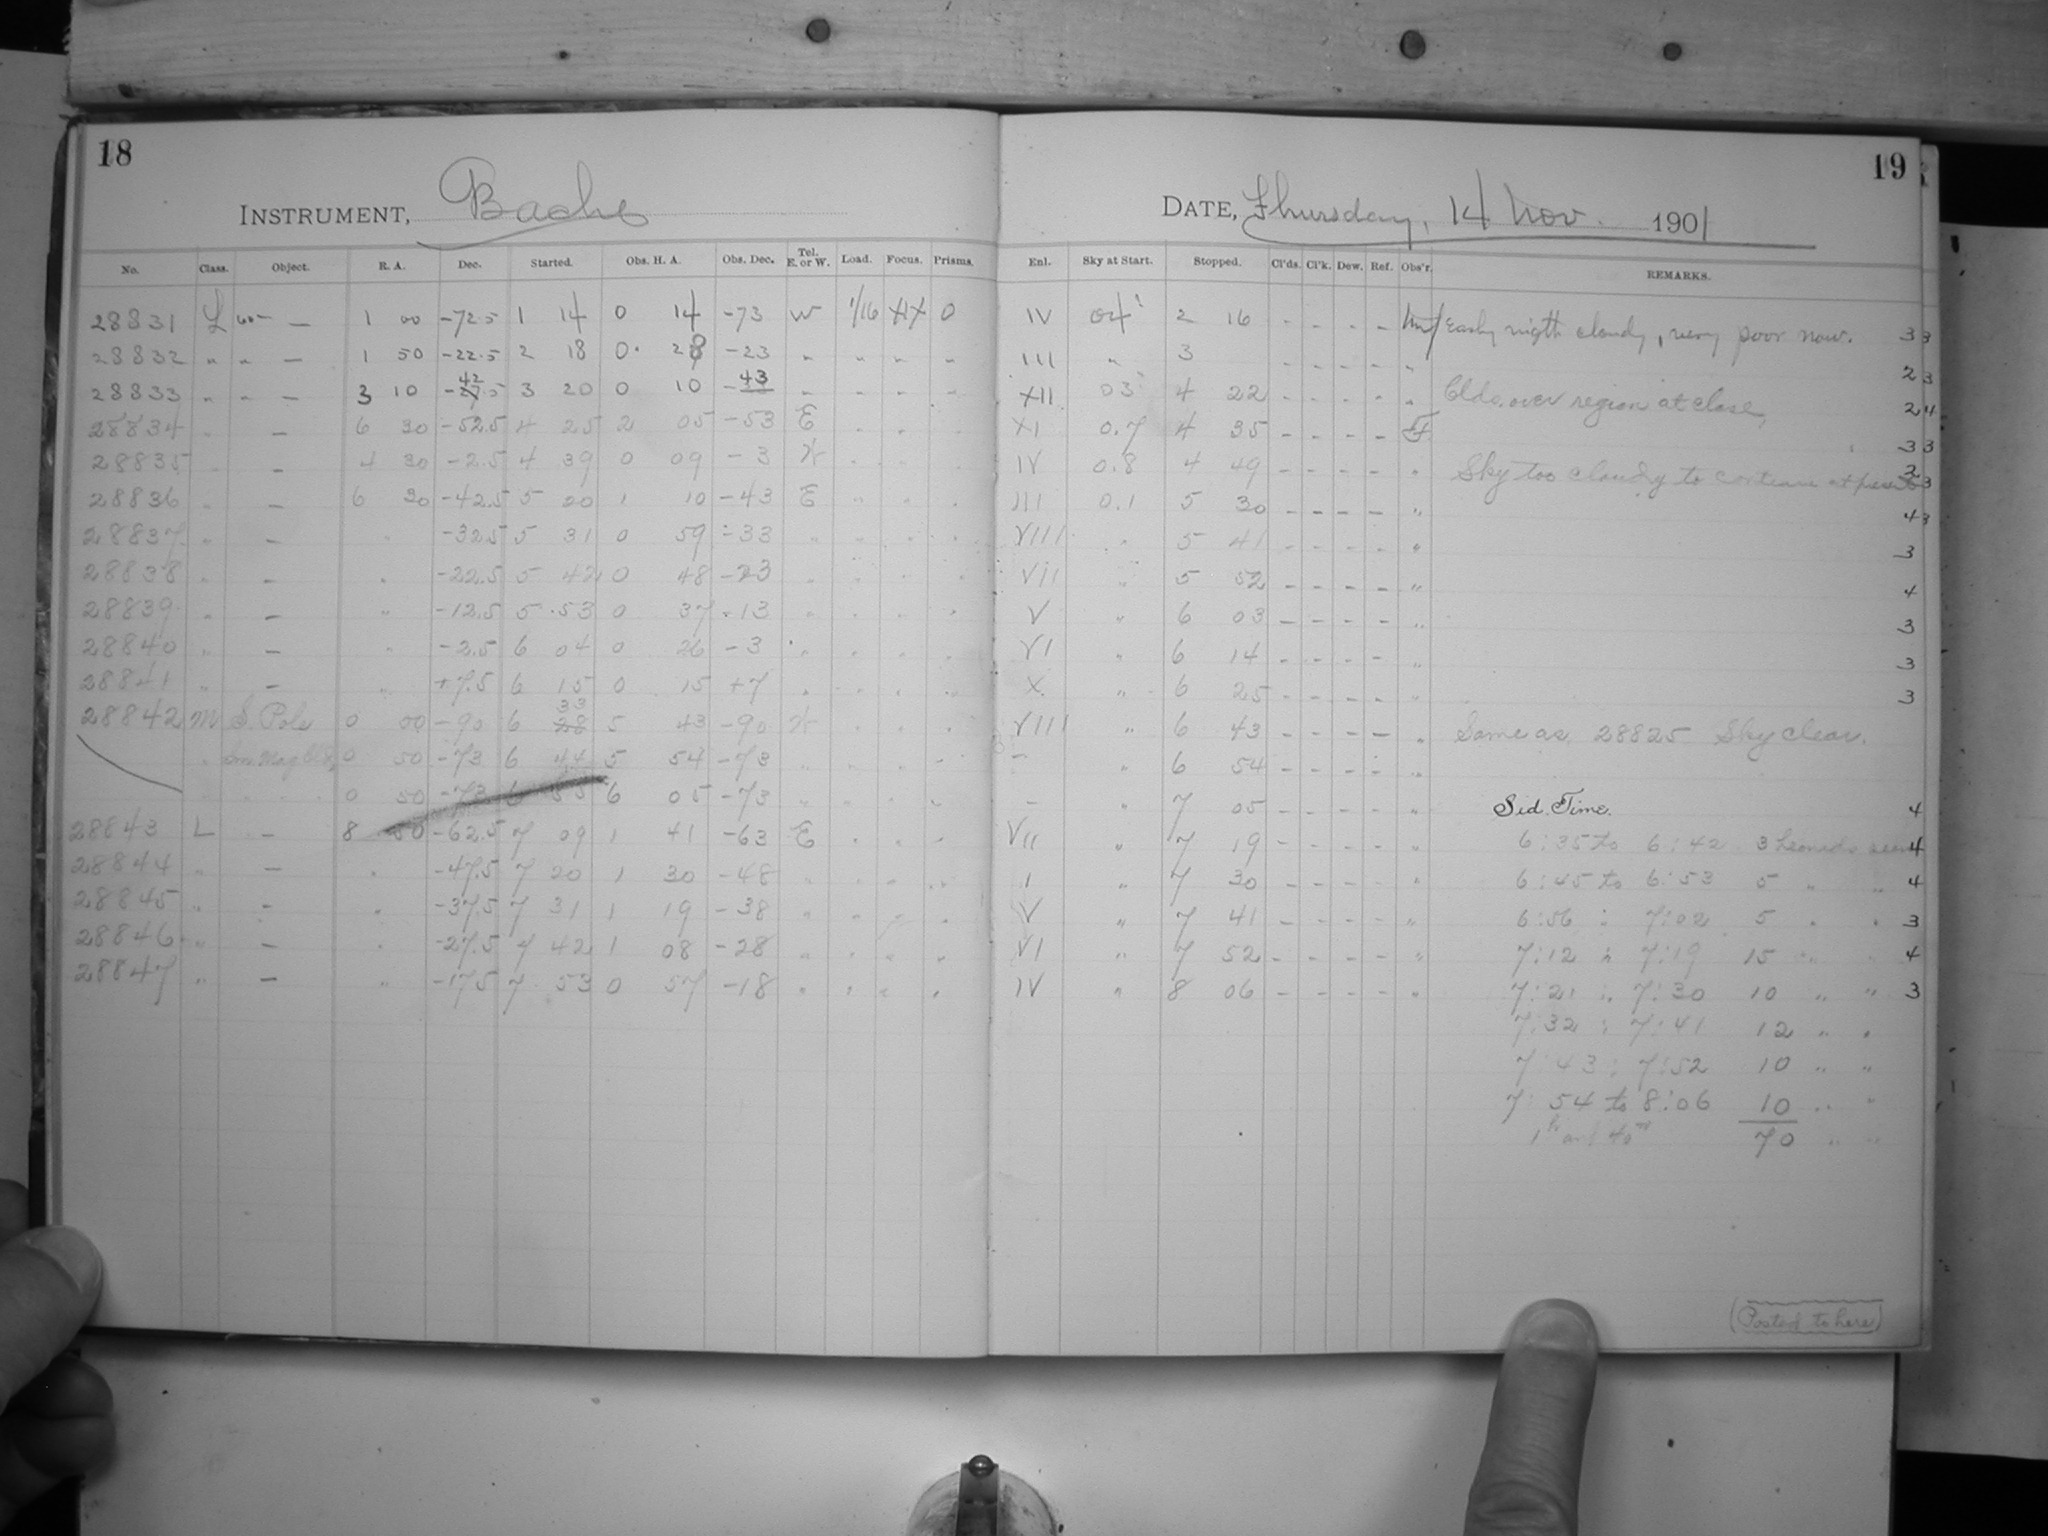 18
INSTRUMENT, Bache
No. Class. Object. R. A. Dec. Started. Obs. H. A. Obs. Dec. Tel. E. or W. Load. Focus. Prisms.
28831 L — 1 00 -72.5 1 14 0 14 -73 W 1/16 0
28832 " " — 1 50 -22.5 2 18 0 28 -23 " " " "
28833 " " — 3 10 -42.5 3 20 0 10 -43 " " " "
28834 " — 6 30 -52.5 4 25 2 05 -53 E " " "
28835 " — 4 30 -2.5 4 39 0 09 -3 W " " "
28836 " — 6 30 -42.5 5 20 1 10 -43 E " " "
28837 " — " -32.5 5 31 0 59 -33 " " " "
28838 " — " -22.5 5 42 0 48 -23 " " " "
28839 " — " -12.5 5 53 0 37 -13 " " " "
28840 " — " -2.5 6 04 0 26 -3 " " " "
28841 " — " +7.5 6 15 0 15 +7 " " " "
28842 M S. Pole 0 00 -90 6 33 5 43 -90 W " " "
" Sm. Mag. Cl'd 0 50 -73 6 44 5 54 -73 " " " "
" " " 0 50 -73 6 55 6 05 -73 " " " "
28843 L — 8 50 -62.5 7 09 1 41 -63 E " " "
28844 " — " -47.5 7 20 1 30 -48 " " " "
28845 " — " -37.5 7 31 1 19 -38 " " " "
28846 " — " -27.5 7 42 1 08 -28 " " " "
28847 " — " -17.5 7 53 0 57 -18 " " " "
19
DATE, Thursday, 14 Nov. 1901
Enl. Sky at Start. Stopped. Cl'ds. Cl'k. Dew. Ref. Obs'r. REMARKS.
IV 04 2 16 - - - - Early nigth cloudy, very poor now. 3 3
III " 3 - - - - " 2 3
XII 03 4 22 - - - - " Clds. over region at close, 2 4
XI 0.7 4 35 - - - - F 3 3
IV 0.8 4 49 - - - - " Sky too cloudy to continue at present 3
III 0.1 5 30 - - - - " 4 3
VIII " 5 41 - - - - " 3
VII " 5 52 - - - - " 4
V " 6 03 - - - - " 3
VI " 6 14 - - - - " 3
X " 6 25 - - - - " 3
VIII " 6 43 - - - - " Same as 28825 Sky clear.
- " 6 54 - - - - "
- " 7 05 - - - - " Sid. Time. 4
VII " 7 19 - - - - " 6:35 to 6:42 3 Leonids seen 4
I " 7 30 - - - - " 6:45 to 6:53 5 " " 4
V " 7 41 - - - - " 6:56 : 7:02 5 " " 3
VI " 7 52 - - - - " 7:12 " 7:19 15 " " 4
IV " 8 06 - - - - " 7:21 " 7:30 10 " " 3
7:32 : 7:41 12 " "
7:43 : 7:52 10 " "
7:54 to 8:06 10 " "
1h and 40m 70 " "
(Posted to here)